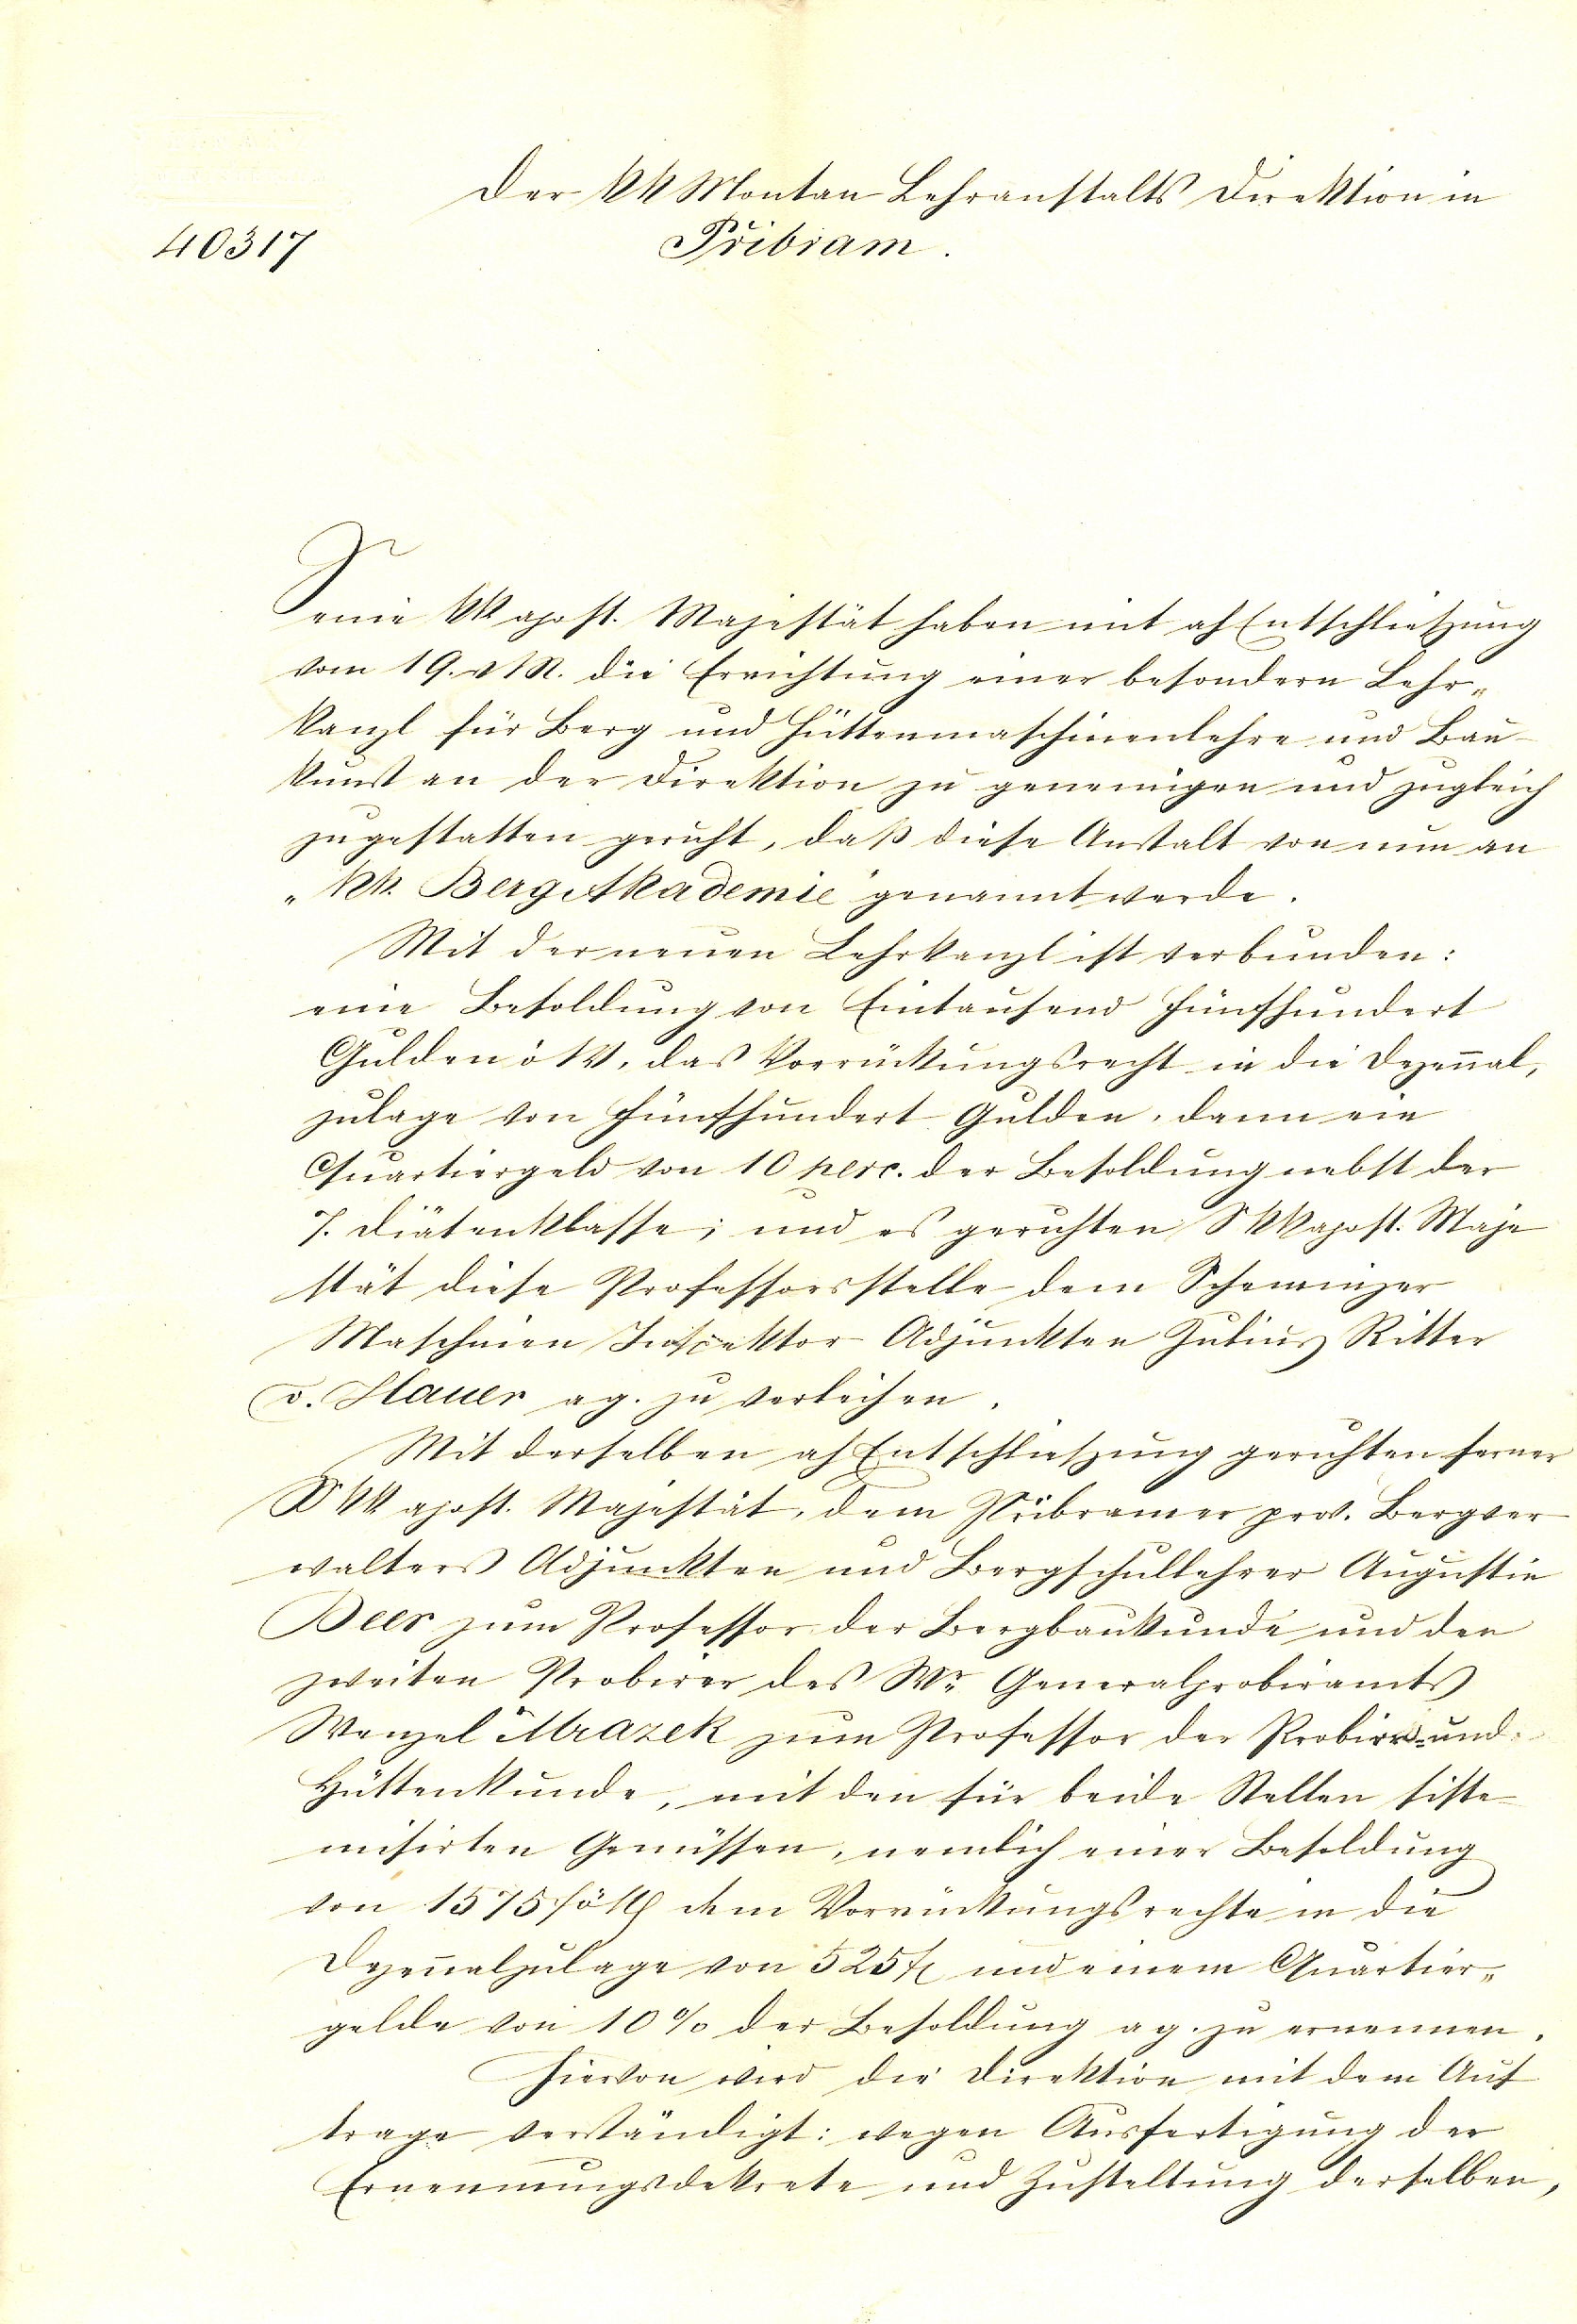 Der kk Montan Lehranstalts Direktion in
40317
Přibram.
Seine kk apost. Majestät haben mit ah Entschließung
vom 19. v M. die Errichtung einer besondern Lehr„
kanzl für Berg und Hüttenmaschinenlehre und Bau-
kunst an der Direktion zu genemigen und zugleich
zugestatten geruht, daß diese Anstalt von nun an
„kk. BergAkademie" genannt werde.
Mit der neuen Lehrkanzl ist verbunden:
eine Besoldung von Eintausend fünfhundert
Gulden ö W, das Vorrückungsrecht in die Dezen̄al„
zulage von fünfhundert Gulden, dann ein
Quartiergeld von 10 perc. der Besoldung nebst der
7. Diätenklasse; und es geruhten S kk apost. Maje
stät diese Professorsstelle dem Schemnizer
Maschinen Inspektor Adjunkten Julius Ritter
v. Hauer a g. zu verleihen.
Mit derselben ah Entschließung geruhten ferner
S kk apost. Majestät, dem Přibramer prov. Bergver
walters Adjunkten und Bergschullehrer Augustin
Beer zum Professor der Bergbaukunde und den
zweiten Probirer des Wr Generalprobiramts
Wenzel Mrazek zum Professor der Probir- und
Hüttenkunde, mit den für beide Stellen siste
misirten Genüssen, nemlich einer Besoldung
von 1575 f ö W dem Vorrückungsrechte in die
Dezen̄alzulage von 525 f und einem Quartier„
gelde von 10 % der Besoldung a g. zu ernennen.
Hievon wird die Direktion mit dem Auf
trage verständigt: wegen Ausfertigung der
Ernennungsdekrete und Zustellung derselben,